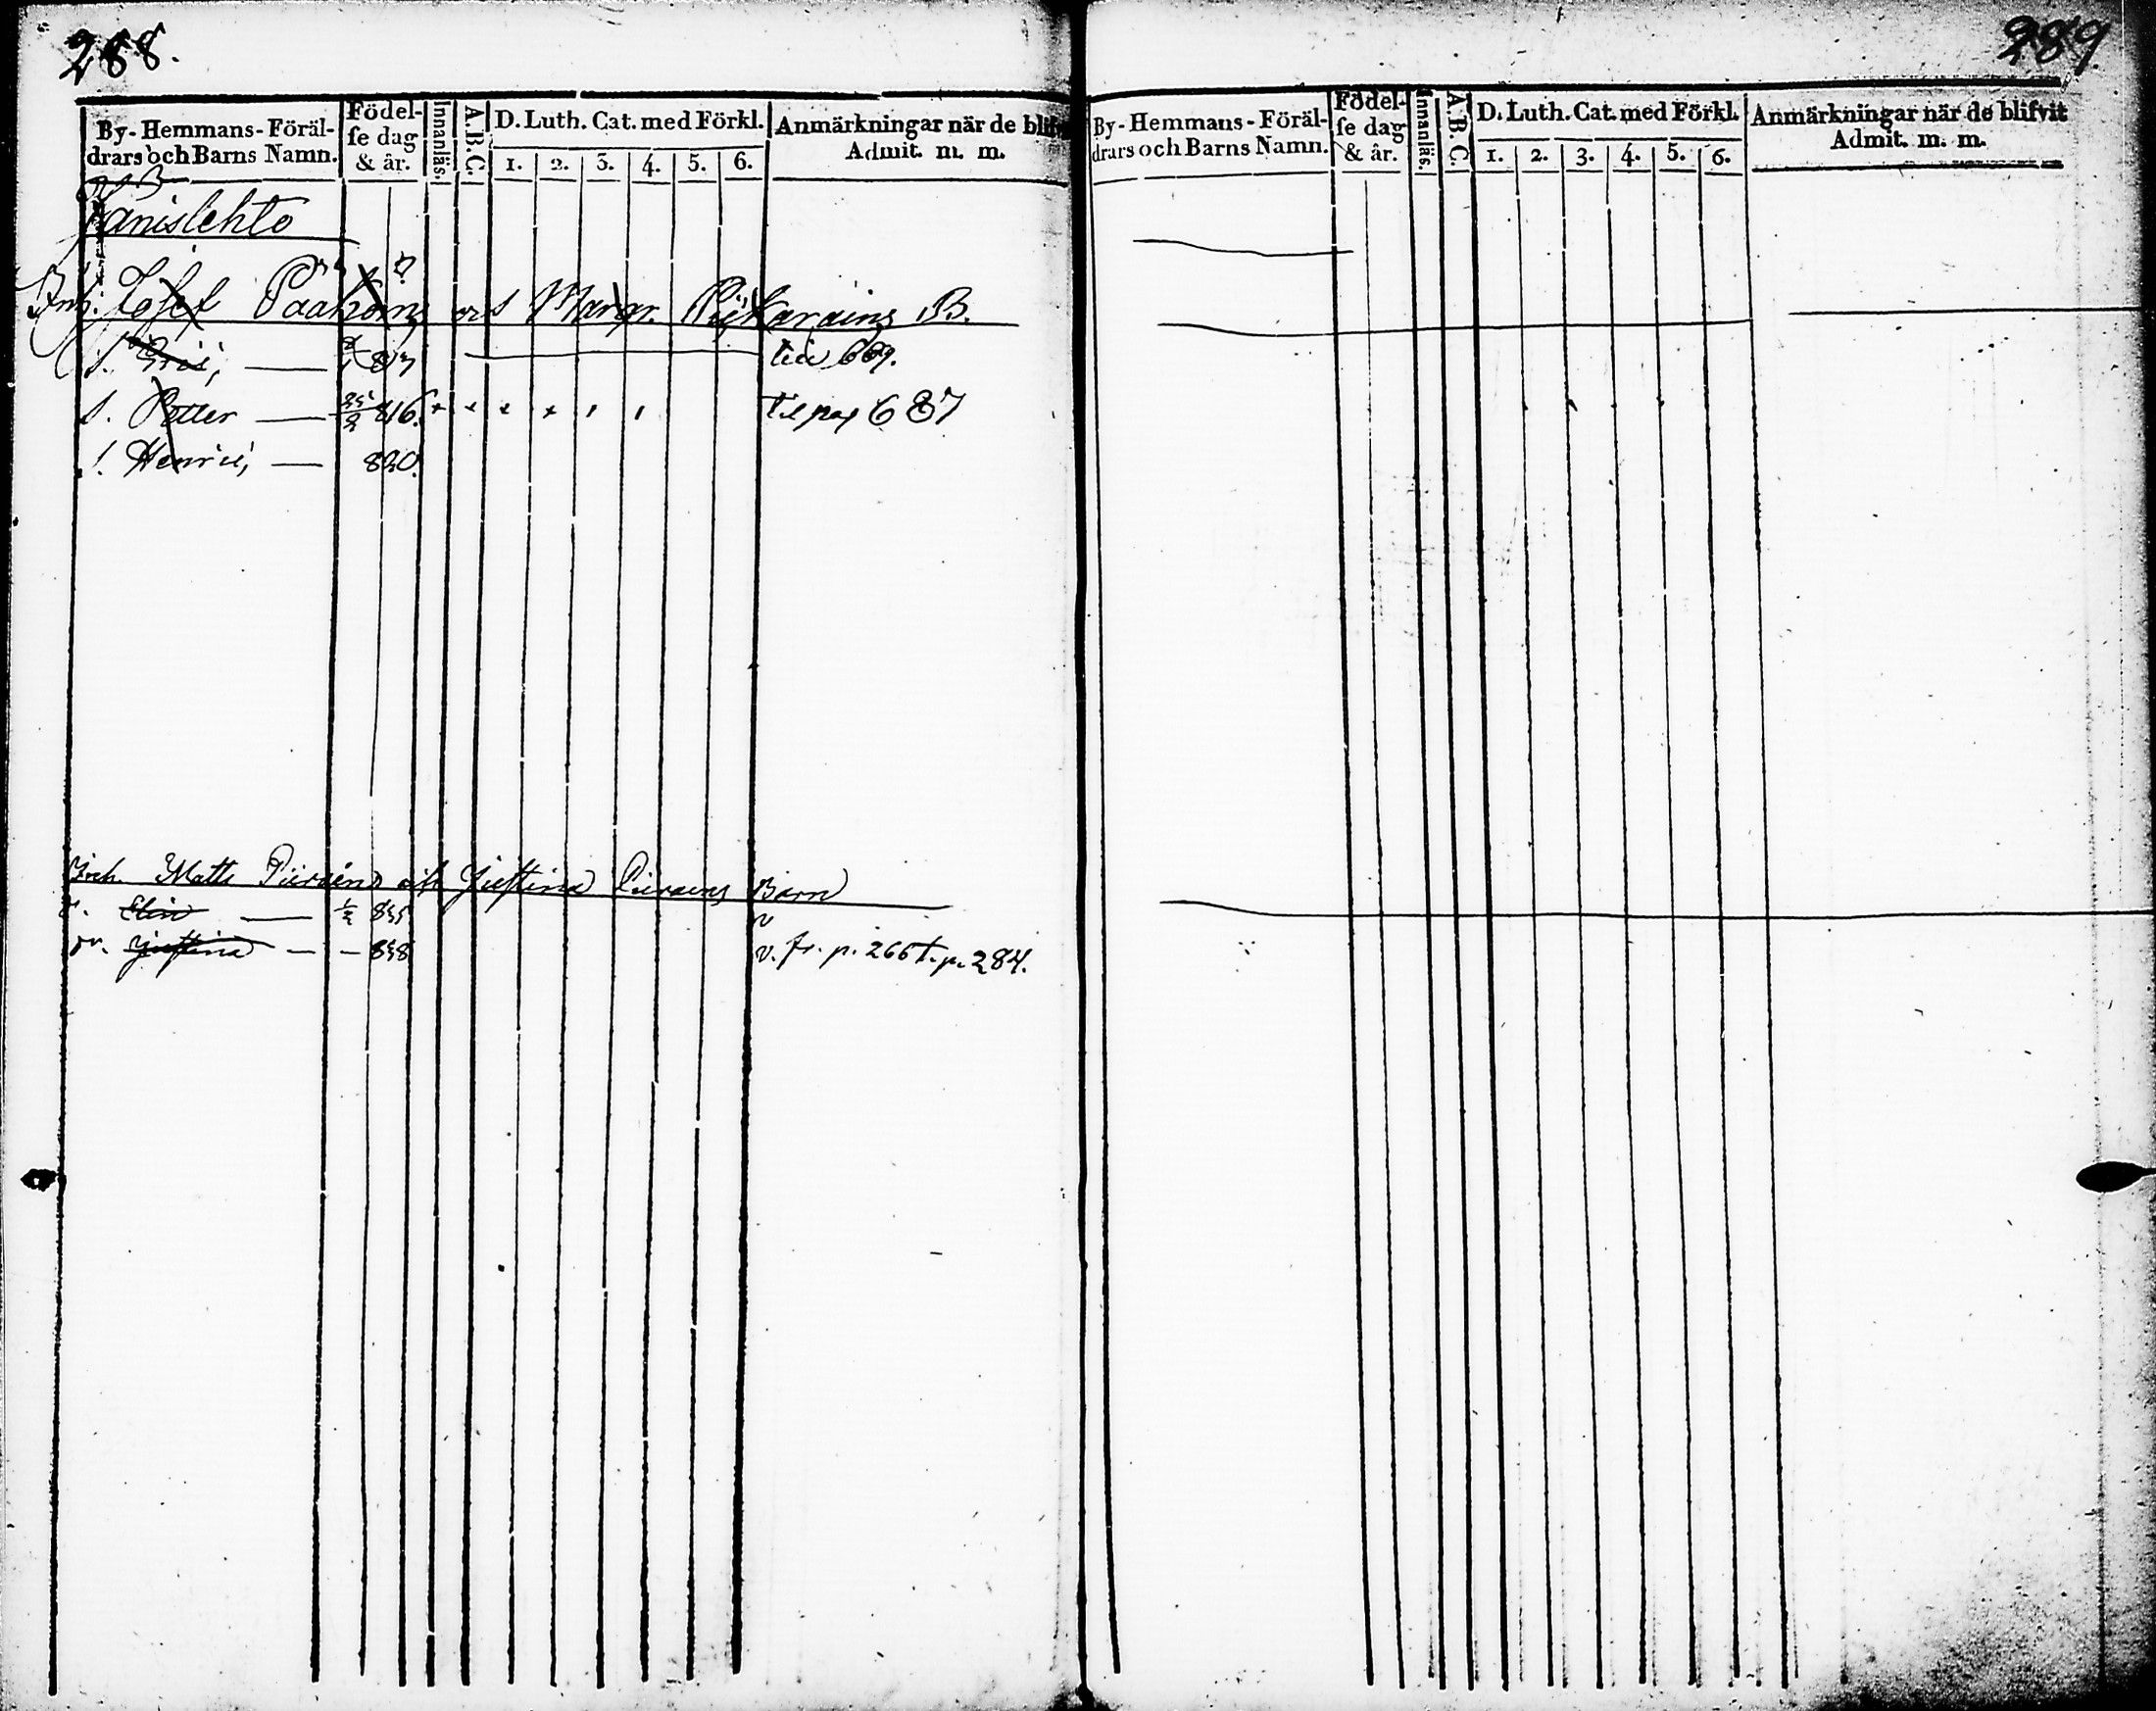 288.
By-Hemmans-Föräl-
drars och Barns Namn.
Födel-
se dag
& år.
Innanläs.
A.B.C.
D. Luth. Cat. med Förkl.
1. 2. 3. 4. 5. 6.
Anmärkningar när de blif
Admit. m. m.
Janislehto
Inh. Josef och Margr. B.
s. Eric, — till 669.
s. Petter — 25/2 816. til pag 687
s. Henric, — 820.
Inh. Matts och Justina Barn
Elin — 835 v
Justina — — 838 v. fr. p. 266 t. p. 284.
289.
By-Hemmans-Föräl-
drars och Barns Namn.
Födel-
se dag
& år.
Innanläs.
A.B.C.
D. Luth. Cat. med Förkl.
1. 2. 3. 4. 5. 6.
Anmärkningar när de blifvit
Admit. m. m.